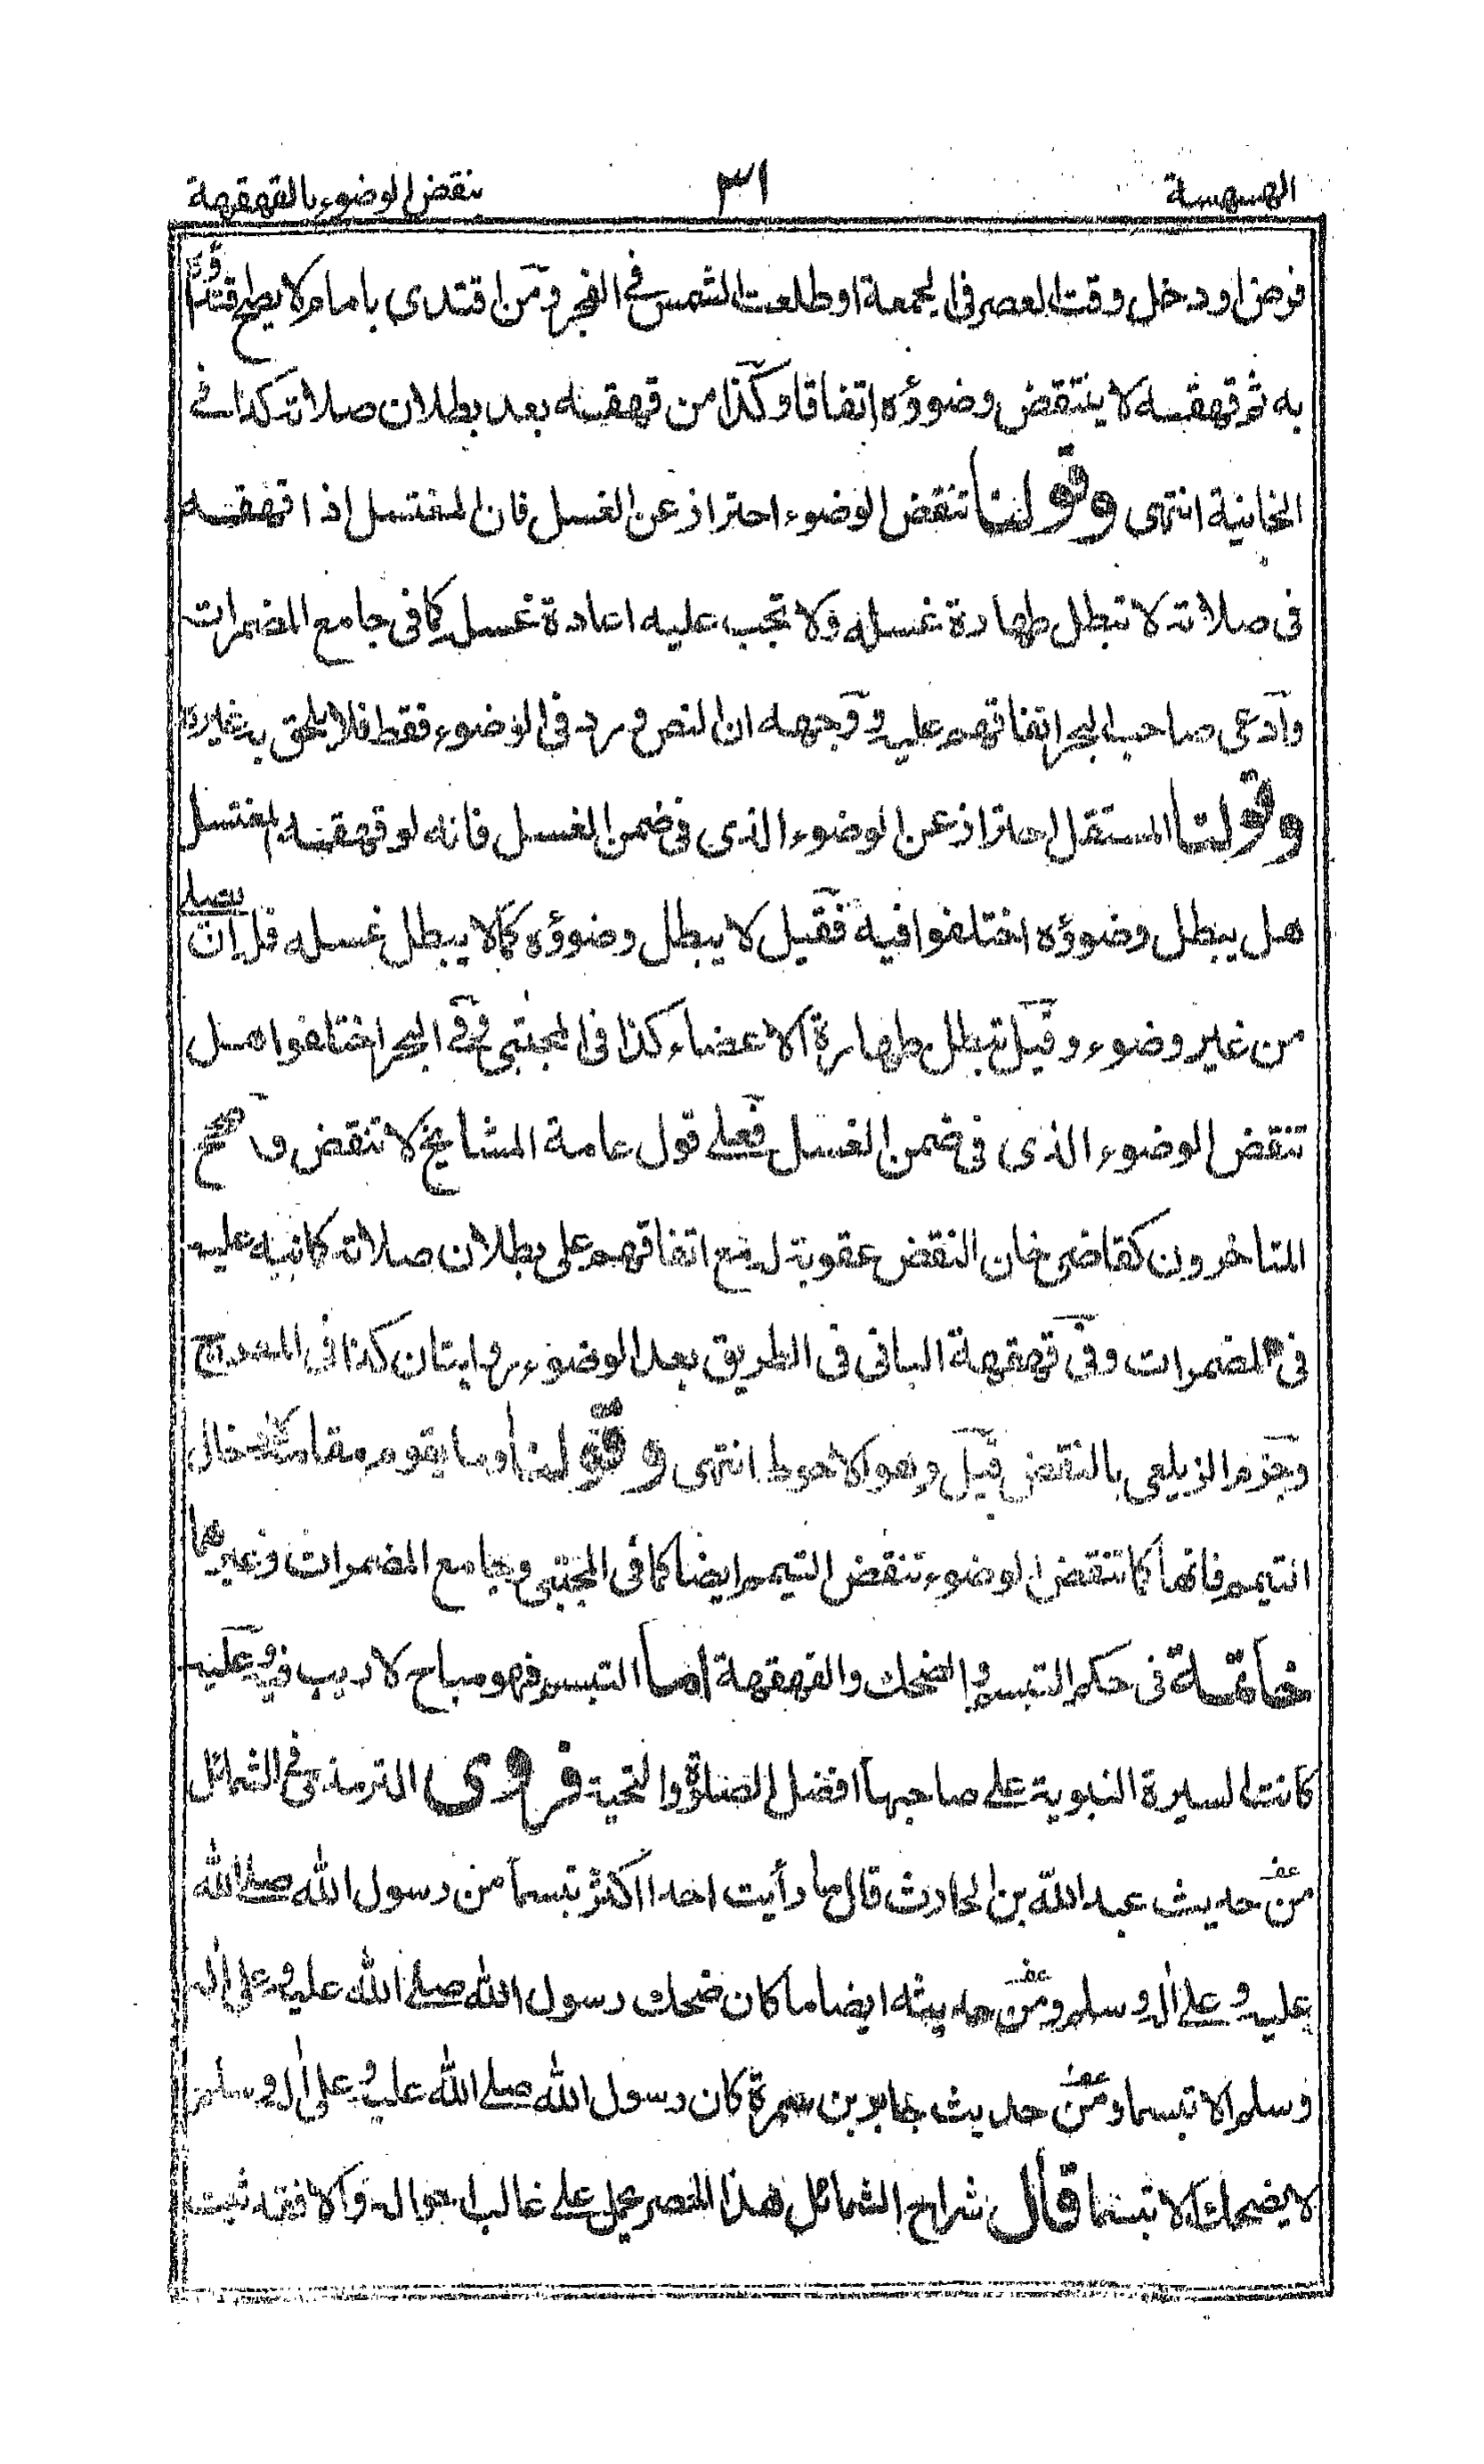 الهسهسة ٣١ بنقض الوضوء بالقهقهة
فرض او دخل وقت العصر فى الجمعة او طلعت الشمس فى الفجر ومن اقتدى بامام لا يصح اقتداؤه
به ثم قهقه لا ينتقض وضوؤه اتفاقا وكذا من قهقه بعد بطلان صلاته كذا فى
الخانية انتهى وقولنا تنقض الوضوء احتراز عن الغسل فان المغتسل اذا قهقه
فى صلاته لا تبطل طهارة غسله ولا تجب عليه اعادة غسله كما فى جامع المضمرات
وادعى صاحب البحر اتفاقهم عليه ووجهه ان النص ورد فى الوضوء فقط فلا يلحق به غيره
وقولنا المستقل احتراز عن الوضوء الذى فى ضمن الغسل فانه لو قهقه المغتسل
هل يبطل وضوؤه اختلفوا فيه فقيل لا يبطل وضوؤه كما لا يبطل غسله فله ان يصلى
من غير وضوء وقيل تبطل طهارة الاعضاء كذا فى المجتبى وفى البحر اختلفوا هل
تنقض الوضوء الذى فى ضمن الغسل فعلى قول عامة المشايخ لا تنقض وصحح
المتاخرون كقاضى خان النقض عقوبة له مع اتفاقهم على بطلان صلاته كما نبه عليه
فى المضمرات وفى قهقهة البانى فى الطريق بعد الوضوء روايتان كذا فى المعراج
وجزم الزيلعى بالنقض قيل وهو الاحوط انتهى وقولنا وما يقوم مقامه لادخال
التيمم فانها كما تنقض الوضوء تنقض التيمم ايضا كما فى المجتبى وجامع المضمرات وغيرهما
خاتمة فى حكم التبسم والضحك والقهقهة اما التبسم فهو مباح لا ريب فيه وعليه
كانت السيرة النبوية على صاحبها افضل الصلوة والتحية فروى الترمذى فى الشمائل
من حديث عبد الله بن الحارث قال ما رأيت احدا اكثر تبسما من رسول الله صلى الله
عليه وعلى اله وسلم ومن حديثه ايضا ما كان ضحك رسول الله صلى الله عليه وعلى اله
وسلم الا تبسما ومن حديث جابر بن سمرة كان رسول الله صلى الله عليه وعلى اله وسلم
لا يضحك الا تبسما قال شراح الشمائل هذا الحصر يحمل على غالب احواله والا فقد ثبت